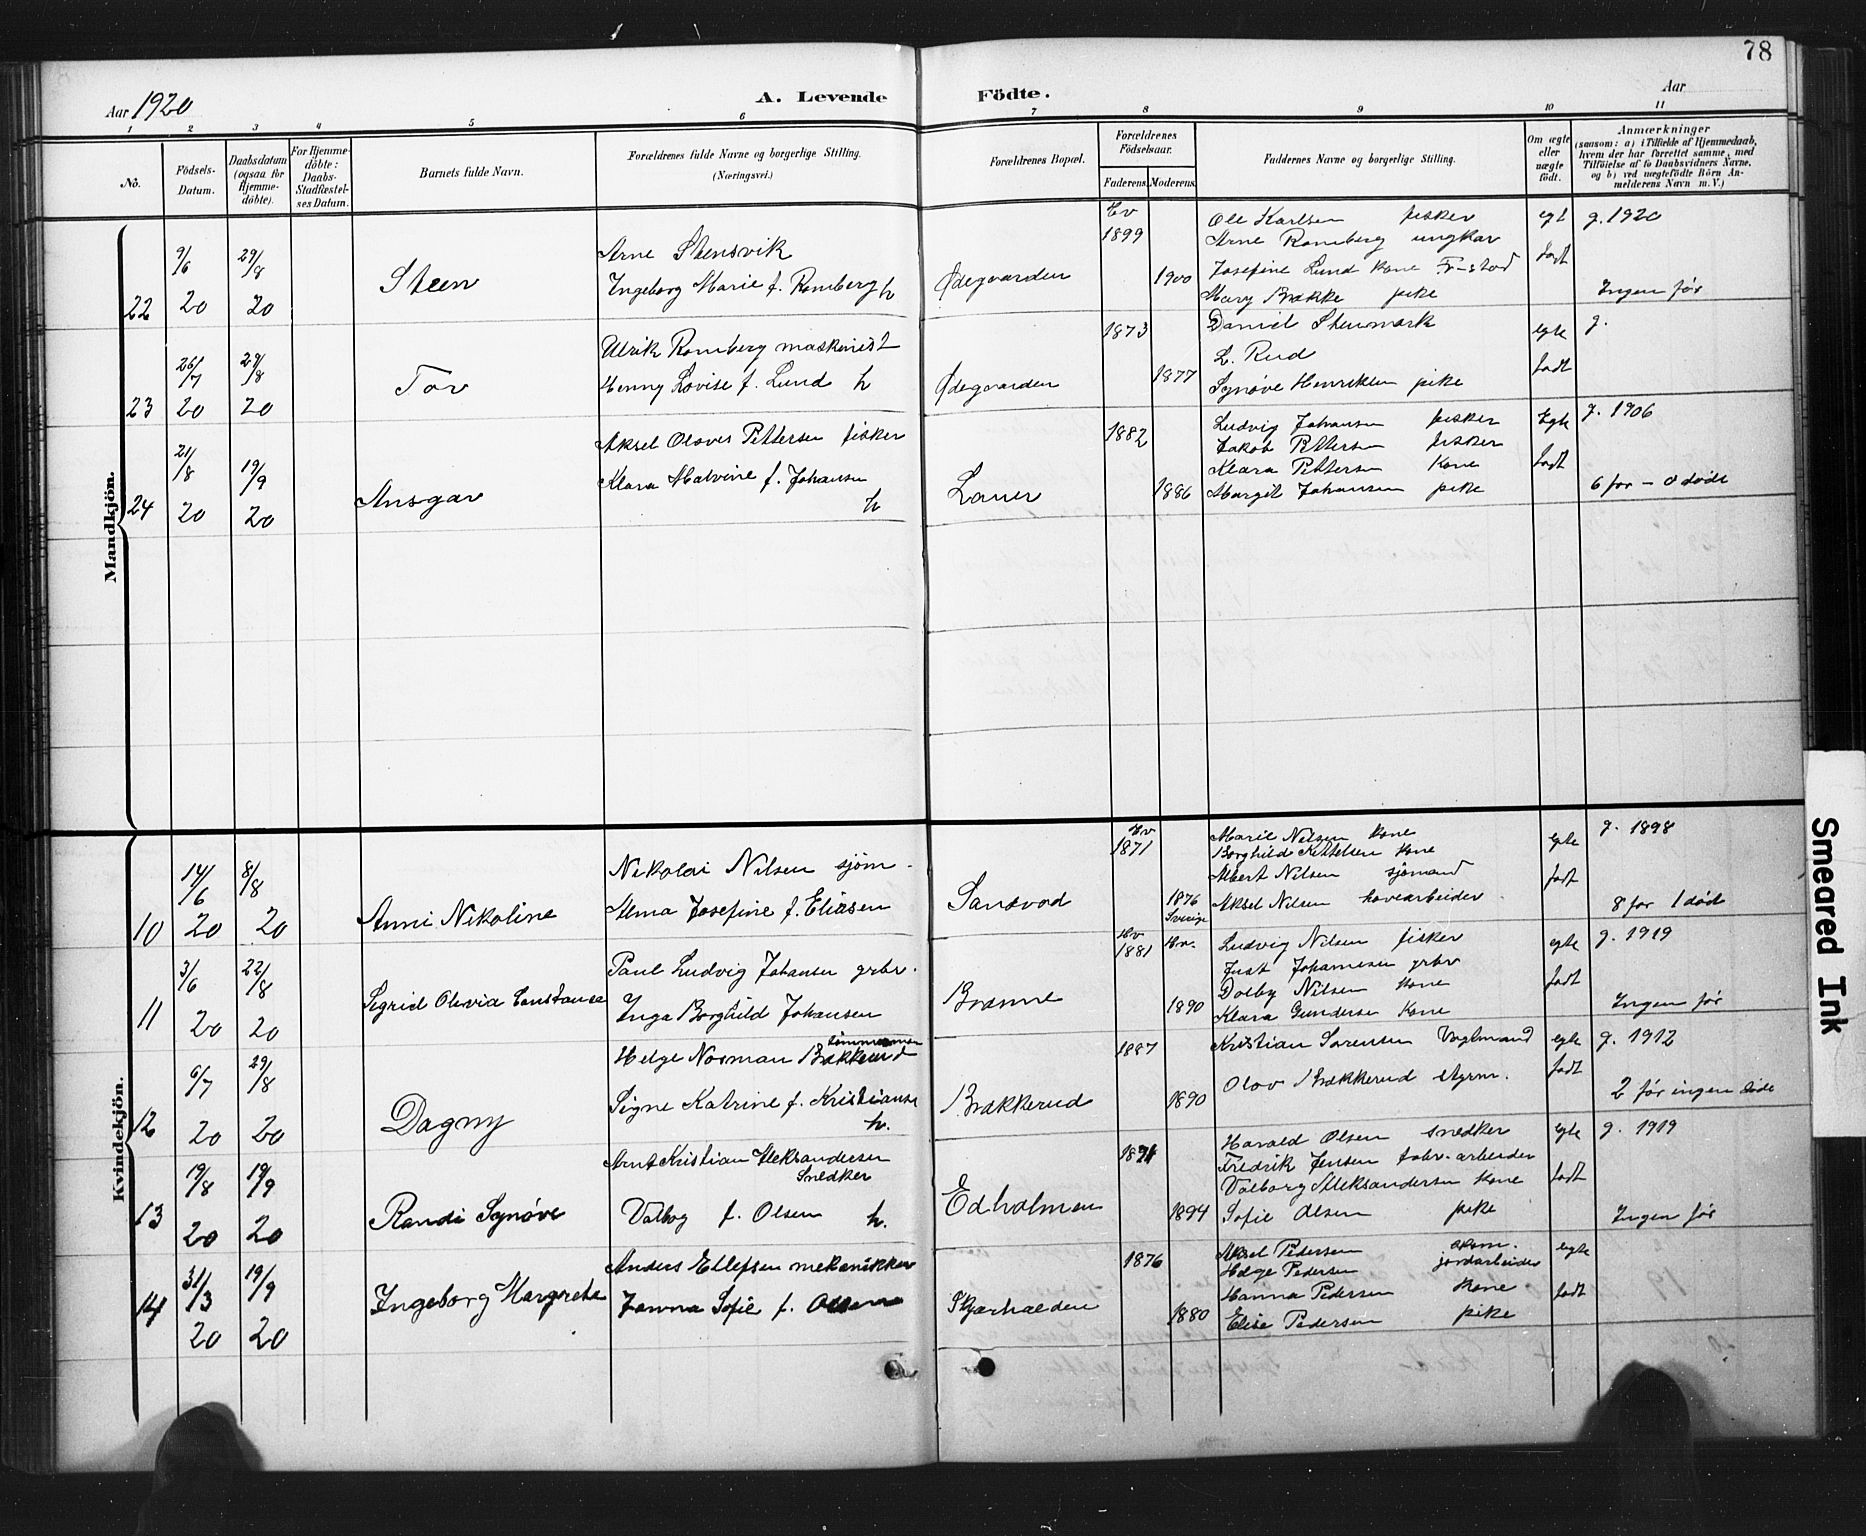 78
Aar 1920
A. Levende Födte.
Aar
1 2 3 4 5 6 7 8 9 10 11
No.
Födsels-Datum.
Daabsdatum (ogsaa for Hjemme-döbte).
For Hjemme-döbte: Daabs-Stadfæstel-ses Datum.
Barnets fulde Navn.
Forældrenes fulde Navne og borgerlige Stilling.
(Næringsvei.)
Forældrenes Bopæl.
Forældrenes Födselsaar.
Faderens. Moderens.
Faddernes Navne og borgerlige Stilling.
Om ægte eller uægte födt.
Anmærkninger
(saasom: a) i Tilfælde af Hjemmedaab, hvem der har forrettet samme, med Tilföielse af to Daabsvidners Navne, og b) ved uægtefödte Börn An-melderens Navn m. V.)
Mandkjön.
22 9/6 20 29/8 20
Steen
Arne Stensvik
Ingeborg Marie f. Romberg h
Ødegaarden
Hv 1899 1900
Ole Karlsen fisker
Arne Romberg ungkar
Josefine Lund kone Fr-stad
Mary Brække pike
egt født
g. 1920
Ingen før
23 26/7 20 29/8 20
Tor
Ulrik Romberg maskinist
Henny Lovise f. Lund h
Ødegaarden
1873 1877
Daniel Stenmark
L. Rud
Synøve Henriksen pike
egte født
g.
24 21/8 20 19/9 20
Ansgar
Aksel Olaves Pettersen fisker
Klara Malvine f. Johansen
h
Lauer
1882 1886
Ludvig Johansen fisker
Jakob Pettersen fisker
Klara Pettersen kone
Margit Johansen pike
Egte født
g. 1906
6 før - 0 døde
Kvindekjön.
10 14/6 20 8/8 20
Anni Nikoline
Nikolai Nilsen sjøm.
Alma Josefine f. Eliasen
Sandvod
Hv 1871 1876 Sverige
Marie Nilsen kone
Borghild Kettelsen kone
Albert Nilsen sjømand
Aksel Nilsen havearbeider
egte født
g. 1898
8 før 1 død
11 3/6 20 22/8 20
Sigrid Olavia Constanse
Paul Ludvig Johansen grbr.
Inga Borghild Johansen
Brænne
Hv 1881 Hv. 1890
Ludvig Nilsen fisker
Just Johannesen grbr
Dolby Nilsen kone
Klara Gundersen kone
egte født
g. 1919
Ingen før
12 6/7 20 29/8 20
Dagny
Helge Norman Brækkerud tømmerman
Signe Katrine f. Kristiansen
h.
Brækkerud
1887 1890
Kristian Sørensen Vagtmand
Olav Brækkerud styrm.
egte født
g. 1912
2 før ingen døde
13 19/8 20 19/9 20
Randi Synøve
Arnt Kristian Aleksandersen
Snedker
Valborg f. Olsen h.
Edholmen
1891 1894
Harald Olsen snedker
Fredrik Jensen fabr. arbeider
Valborg Aleksandersen kone
Sofie Olsen pike
egte født
g. 1919
Ingen før
14 31/3 20 19/9 20
Ingeborg Margrete
Anders Ellefsen mekanikker
Janna Sofie f. Olsen
Skjærhalden
1876 1880
Aksel Pedersen
Helge Pedersen jordarbeider
Hanna Pedersen kone
Elise Pedersen pike
egte født
Smeared Ink